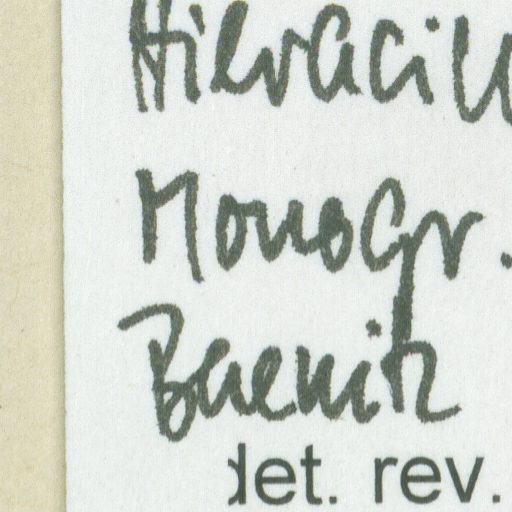 Hieraciu
Monogr.
Baenitz
det. rev.